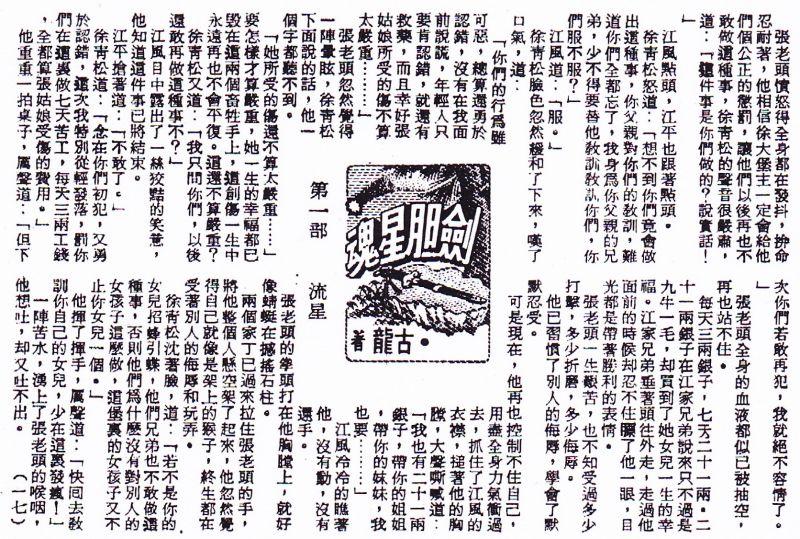 張老頭憤怒得全身都在發抖，拚命
忍耐著，他相信徐大堡主一定會給他
們個公正的懲罰，讓他們以後再也不
敢做這種事，徐青松的聲音很嚴肅，
道：「這件事是你們做的？說實話！」
江風點頭，江平也跟著點頭。
徐青松怒道：「想不到你們竟會做
出這種事，你父親對你們的教訓，難
道你們全都忘了，我身爲你父親的兄
弟，少不得要替他教訓教訓你們，你
們服不服？」
江風道：「服。」
徐青松臉色忽然緩和了下來，嘆了
口氣，道：
「你們的行爲雖
可惡，總算還勇於
認錯，沒有在我面
前說謊，年輕人只
要肯認錯，就還有
救藥，而且幸好張
姑娘所受的傷不算
太嚴重……」
張老頭忽然覺得
一陣暈眩，徐青松
下面說的話，他一
個字都聽不到。
「她所受的傷還不算太嚴重……」
要怎樣才算嚴重，她一生的幸福都已
毀在這兩個畜牲手上，這創傷一生中
永遠再也不會平復。這還不算嚴重？
徐青松又道：「我只問你們，以後
還敢再做這種事不？」
江風目中露出了一絲狡黠的笑意，
他知道這件事已將結束。
江平搶著道：「不敢了。」
徐青松道：「念在你們初犯，又勇
於認錯，這次我特別從輕發落，罰你
們在這裏做七天苦工，每天三兩工錢
，全都算張姑娘受傷的費用。」
他重重一拍桌子，厲聲道：「但下
劍胆星魂
古龍·著
第一部　流星
次你們若敢再犯，我就絕不容情了。」
張老頭全身的血液都似已被抽空，
再也站不住。
每天三兩銀子，七天二十一兩。二
十一兩銀子在江家兄弟說來只不過是
九牛一毛，却買到了她女兒一生的幸
福。江家兄弟垂著頭往外走，走過他
面前的時候却忍不住瞟了他一眼，目
光都是帶著勝利的表情。
張老頭一生艱苦，也不知受過多少
打擊，多少折磨，多少侮辱。
他已習慣了別人的侮辱，學會了默
默忍受。
可是現在，他再也控制不住自己，
用盡全身力氣衝過
去，抓住了江風的
衣襟，搥著他的胸
膛，大聲嘶喊道：
「我也有二十一兩
銀子，帶你的姐姐
，帶你的妹妹，我
也要……」
江風冷冷的瞧著
他，沒有動，沒有
還手。
張老頭的拳頭打在他胸膛上，就好
像蜻蜓在撼搖石柱。
兩個家丁已過來拉住張老頭的手，
將他整個人懸空架了起來，他忽然覺
得自己就像是架上的猴子，終生都在
受著別人的侮辱和玩弄。
徐青松沈著臉，道：「若不是你的
女兒招蜂引蝶，他們兄弟也不敢做這
種事，否則他們爲什麼沒有對別人的
女孩子這麼做，這堡裏的女孩子又不
止你女兒一個。」
他揮了揮手，厲聲道：「快回去教
訓你自己的女兒，少在這裏發瘋！」
一陣苦水，湧上了張老頭的喉咽，
他想吐，却又吐不出。　（一七）